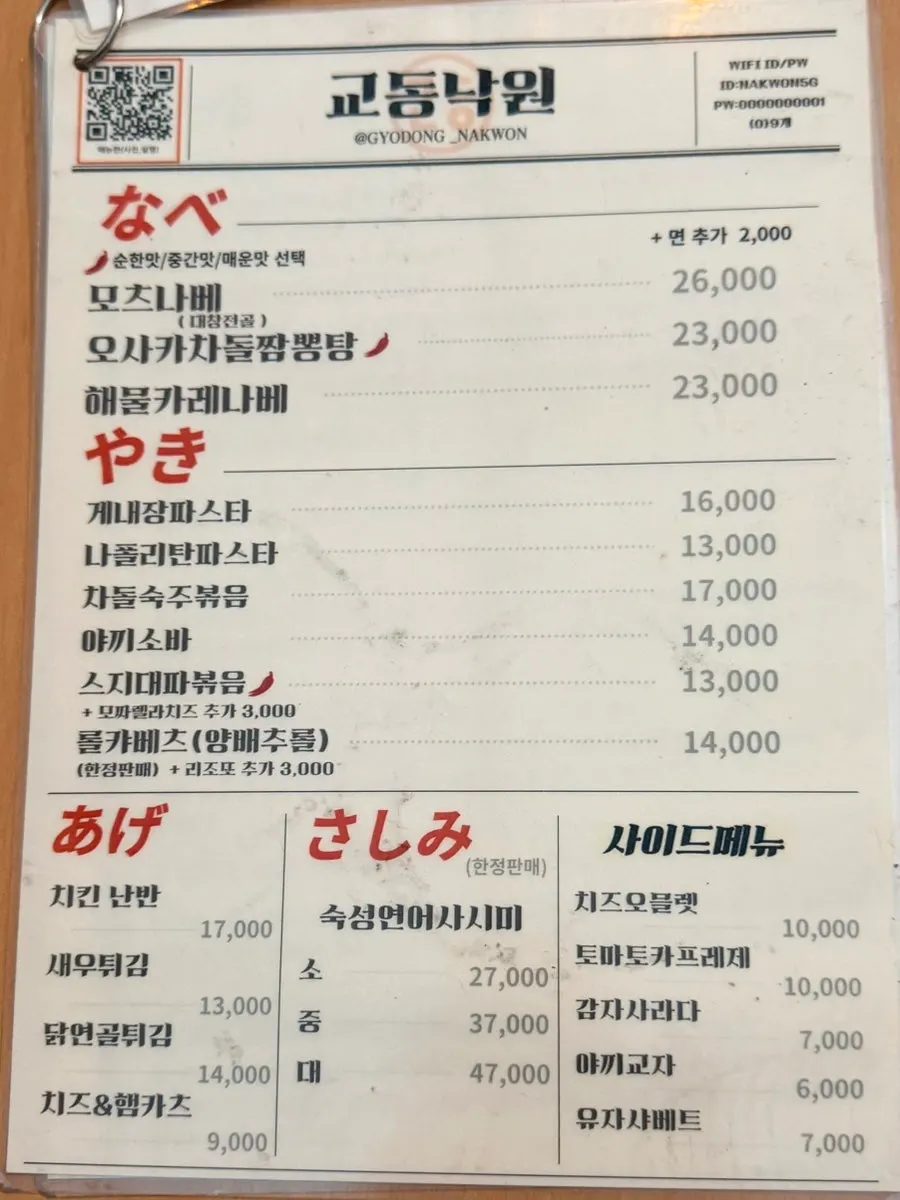 메뉴판(사진,설명)
교동낙원
@GYODONG_NAKWON
WIFI ID/PW
ID:NAKWON5G
PW:0000000001
(0)9개
なべ
+ 면 추가 2,000
순한맛/중간맛/매운맛 선택
모츠나베 26,000
(대창전골)
오사카차돌짬뽕탕 23,000
해물카레나베 23,000
やき
게내장파스타 16,000
나폴리탄파스타 13,000
차돌숙주볶음 17,000
야끼소바 14,000
스지대파볶음 13,000
+ 모짜렐라치즈 추가 3,000
롤캬베츠(양배추롤) 14,000
(한정판매) + 리조또 추가 3,000
あげ
치킨 난반
17,000
새우튀김
13,000
닭연골튀김
14,000
치즈&햄카츠
9,000
さしみ
(한정판매)
숙성연어사시미
소 27,000
중 37,000
대 47,000
사이드메뉴
치즈오믈렛
10,000
토마토카프레제
10,000
감자사라다
7,000
야끼교자
6,000
유자샤베트
7,000